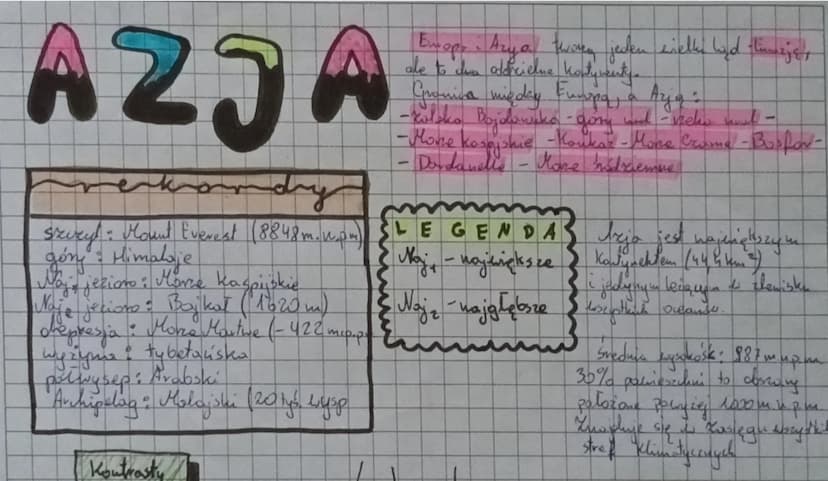 AZJA
Europa i Azja tworzą jeden wielki ląd
ale to dwa oddzielne kontynenty.
Granica między Europą, a Azją:
- zatoka - góry ural - rzeka ural -
- Morze kaspijskie - Kaukaz - Morze Czarne - Bosfor -
- Dardanelle - Morze śródziemne
rekordy
szczyt: Mount Everest (8848m.n.p.m)
góry: Himalaje
Naj₁ jezioro: Morze Kaspijskie
Naj₂ jezioro: Bajkał (1620m)
depresja: Morze Martwe (-422 m.p.p.
wyżyna: tybetańska
półwysep: Arabski
Archipelag: Malajski (20 tyś. wysp
LEGENDA
Naj₁ - największe
Naj₂ - najgłębsze
Azja jest największym
kontynentem (44,5 km²)
i jedynym leżącym w zlewisku
wszystkich oceanów.
Średnia wysokość: 987 m n.p.m
30% powierzchni to obszary
położone powyżej 1000 m n.p.m
Znajduje się w zasięgu wszystkich
stref klimatycznych
Kontrasty